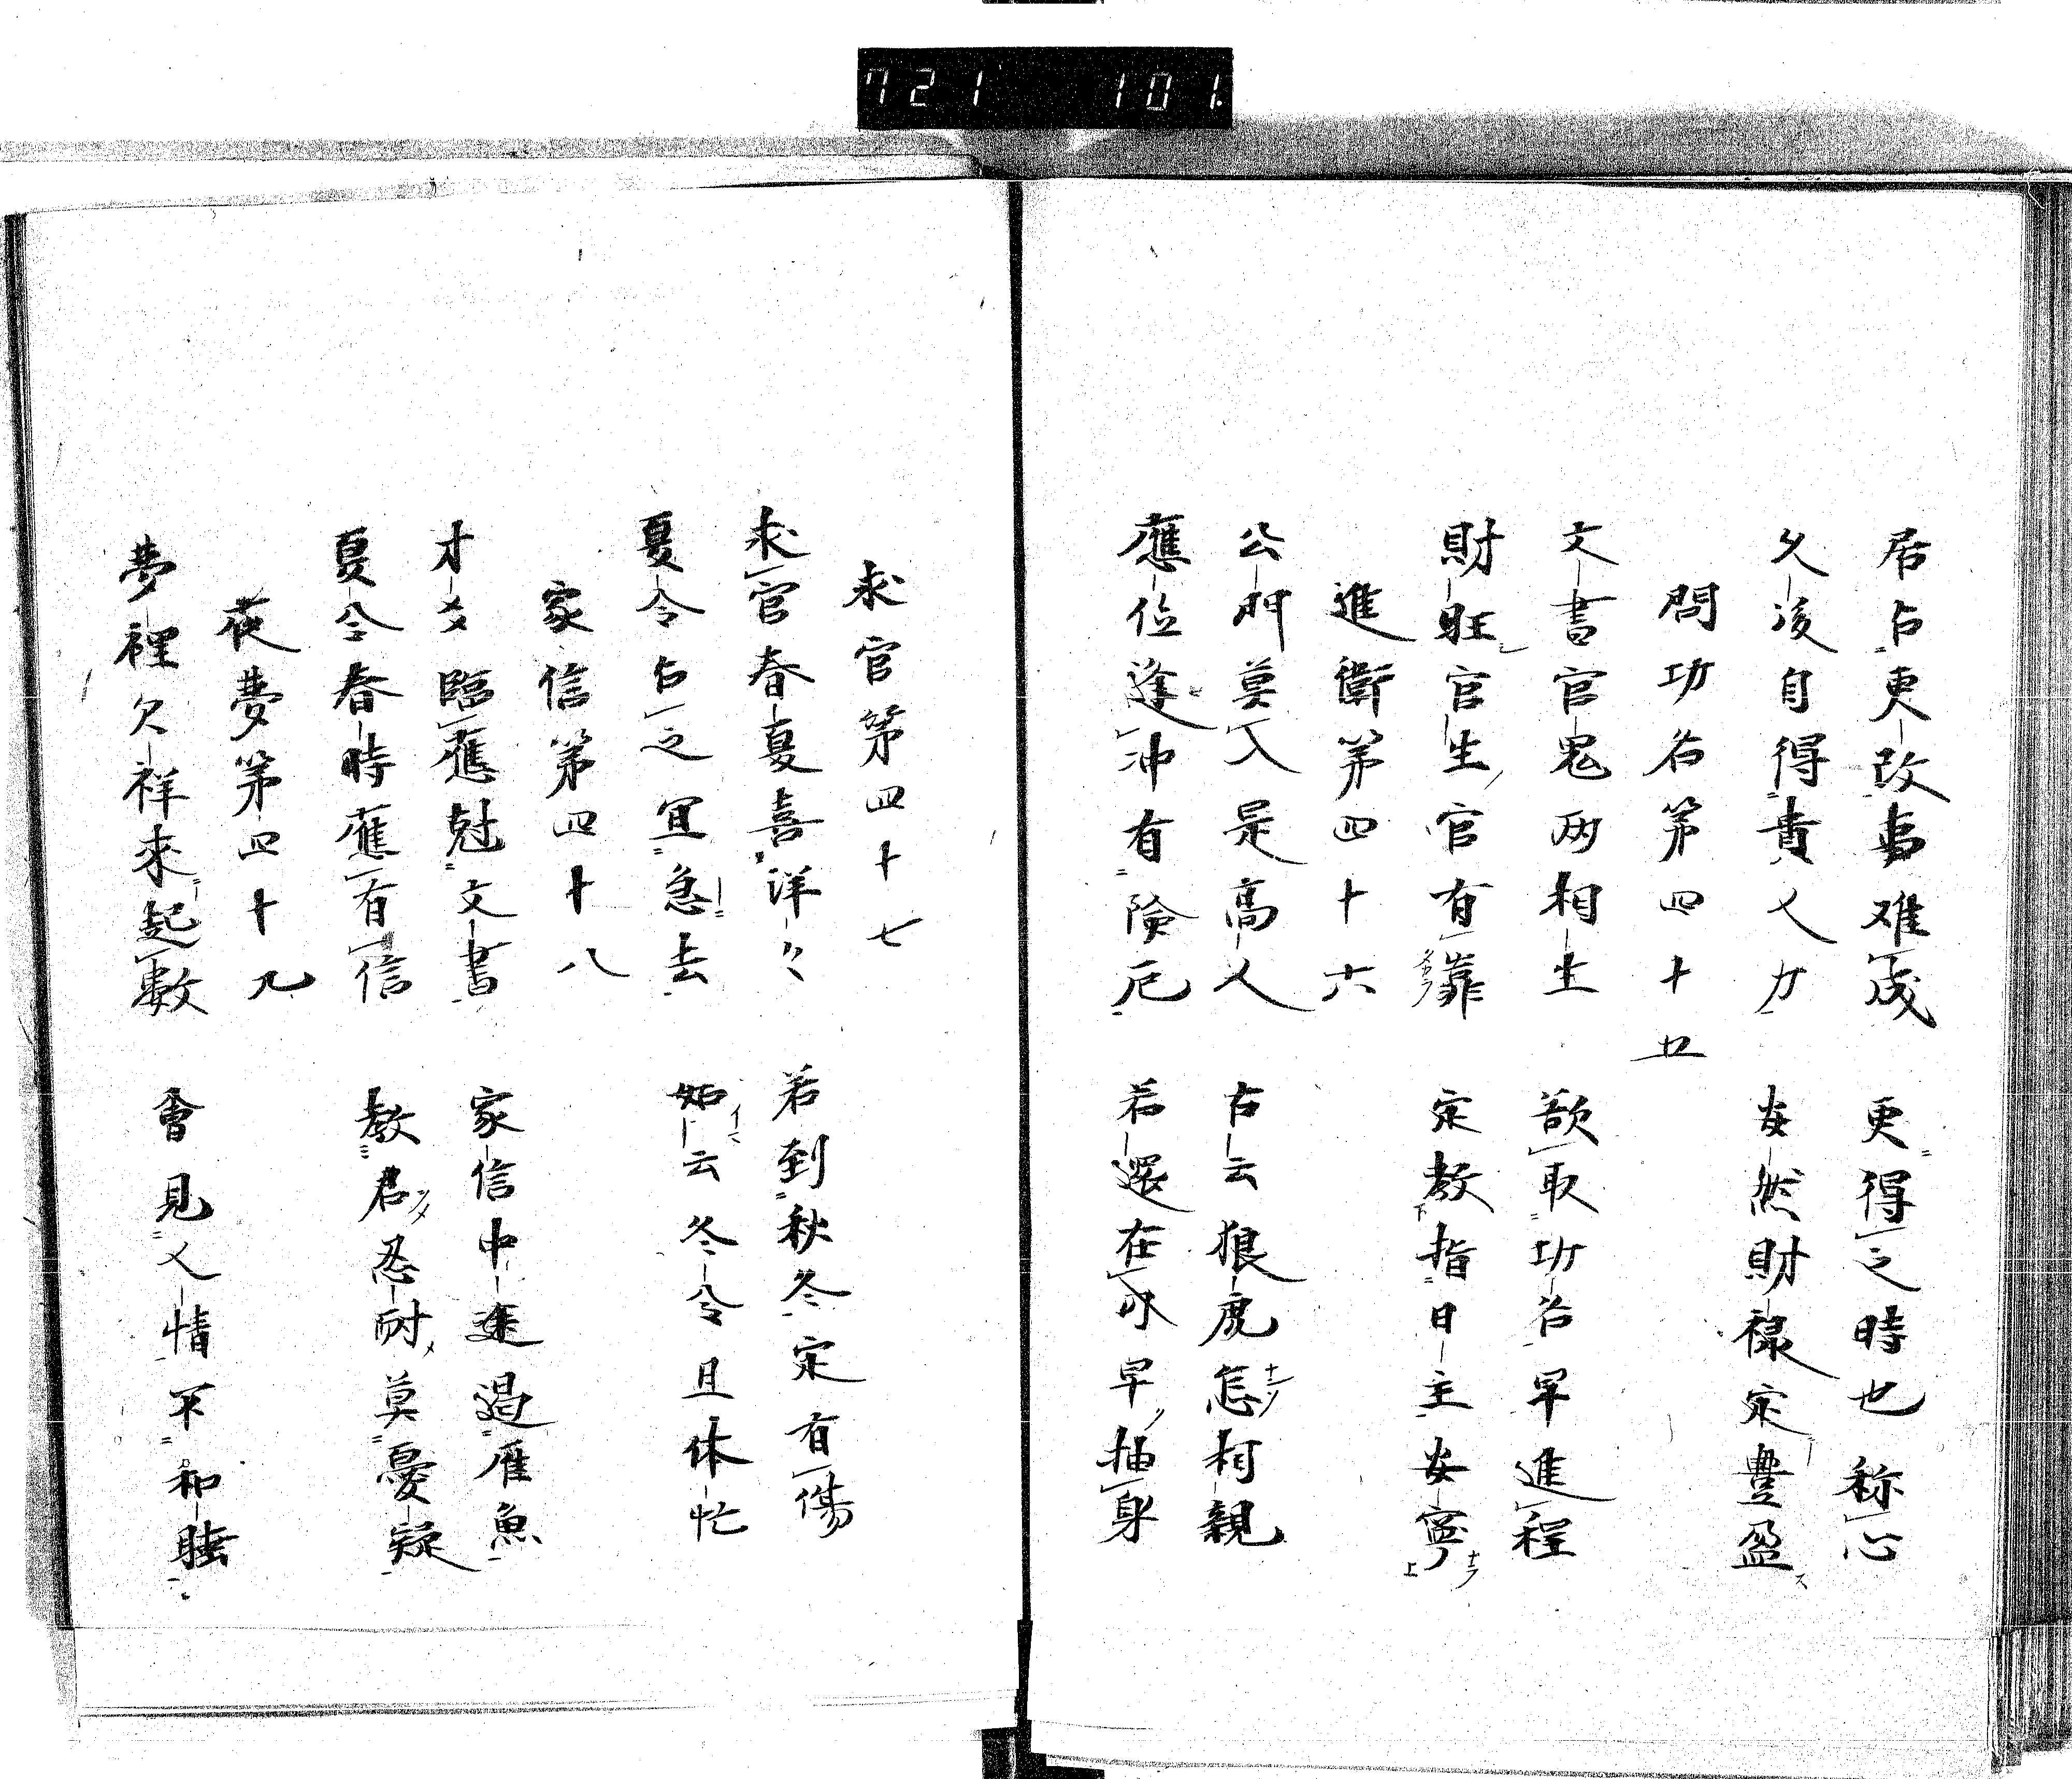 721 101.
居占更改事难成 更得之時也称心
久後自得貴人力 安然財禄定豊盈
問功名第四十五
文書官鬼両相生 欲取功名早進程
財旺官生官有靠 定教指日主安寧
進衛第四十六
公門莫入是高人 古云狼虎怎柯親
應位逢冲有險厄 若還在 早抽身
求官第四十七
求官春夏喜洋々 若到秋冬定有傷
夏令占之宜急去 如云冬令且休忙
家信第四十八
才爻臨應尅文書 家信中途過雁魚
夏令春時應有信 教君忍耐莫憂疑
夜夢第四十九
夢裡欠祥來起數 會見人情不和睦